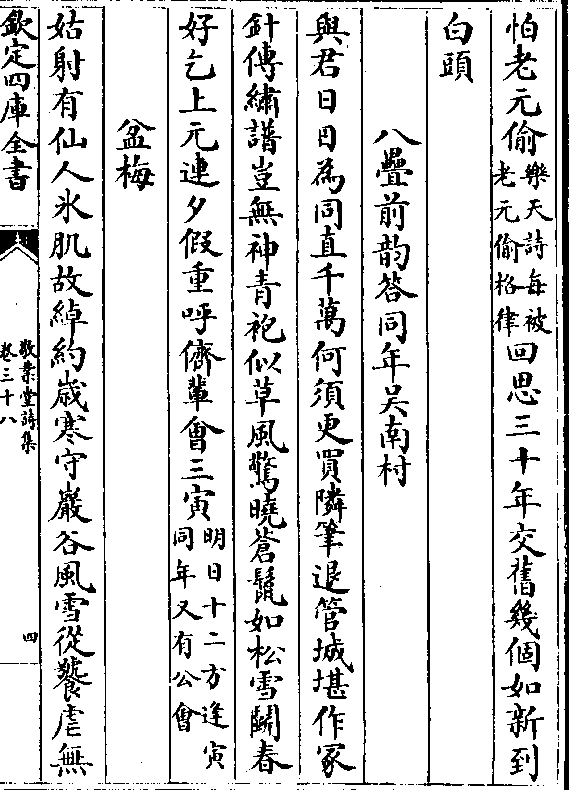 怕老元偷樂天詩每被老元偷格律回思三十年交舊幾個如新到
白頭
八疊前韵答同年吴南村
與君日日為同直千萬何須更買隣筆退管城堪作冢
針傳繡譜豈無神青袍似草風驚曉蒼鬣如松雪鬭春
好乞上元連夕假重呼儕輩會三寅明日十二方逢寅同年又有公會
盆梅
姑射有仙人氷肌故綽約歲寒守巖谷風雪從饕虐無
欽定四庫全書
敬業堂詩集
卷三十八
四